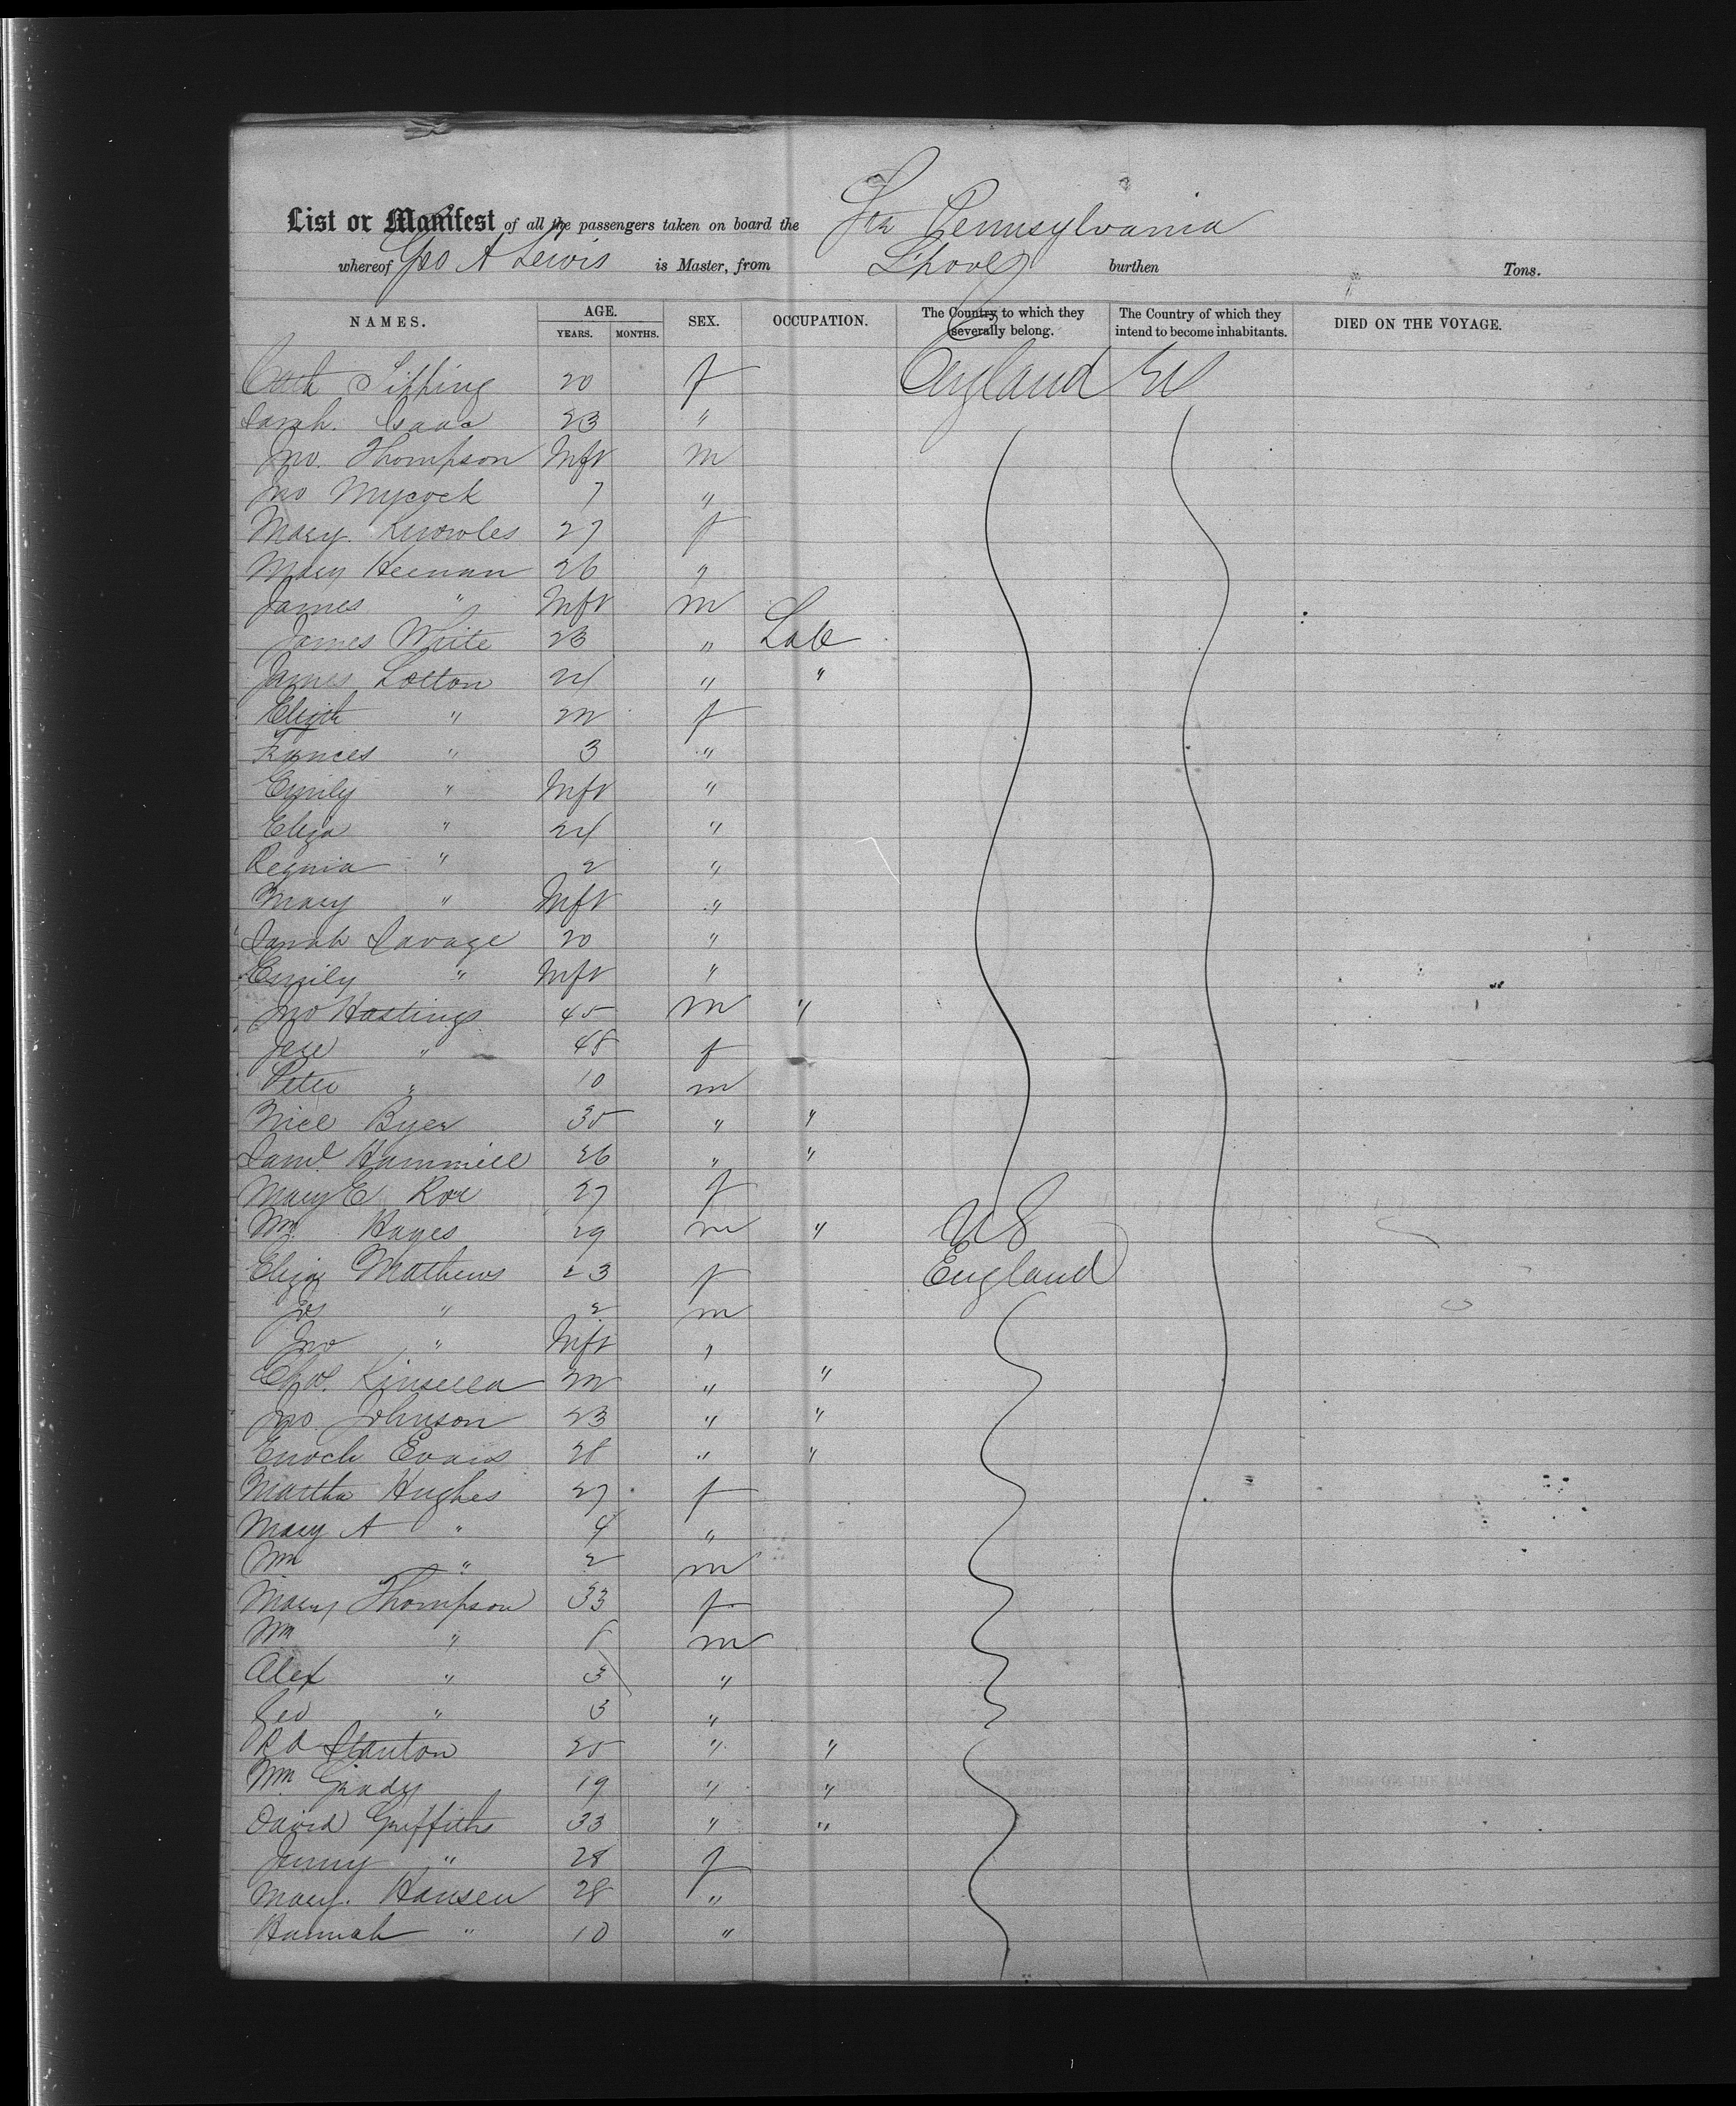 List or Manifest of all the passengers taken on board the Str Pennsylvania
whereof Geo A Lewis is Master, from L'pool burthen Tons.
NAMES. AGE. YEARS. MONTHS. SEX. OCCUPATION. The Country to which they severally belong. The Country of which they intend to become inhabitants. DIED ON THE VOYAGE.
Cath 20 f England US
Sarah. Isaac 23 "
Jno. Thompson Inft m
Jno Mycock 7 "
Mary. Knowles 27 f
Mary Heenan 26 "
James " Inft m
James White 23 " Lab
James Lotton 24 " "
Elizth " 22 f
Frances " 3 "
Emily " Inft "
Eliza " 24 "
Regnia " 2 "
Mary " Inft "
Sarah Savage 20 "
Emily " Inft "
Jno Hastings 45 m "
" 48 f
Peter " 10 m
Byer 35 " "
Saml Hammill 26 " "
Mary E Roe 27 f
Wm. Hayes 29 m " US
Eliza Mathews 23 f England
Jos " 2 m
Jno " Inft "
Chas. Kinsella 22 " "
Jno. Johnson 23 " "
Enoch Evans 28 " "
Martha Hughes 27 f
Mary A " 4 "
Wm " 2 m
Mary Thompson 33 f
Wm " 8 m
Alex " 3 "
Geo " 3 "
Stanton 25 " "
Wm Grady 19 " "
David Griffiths 33 " "
Jenny " 28 f
Mary. Hansen 28 "
Hannah " 10 "